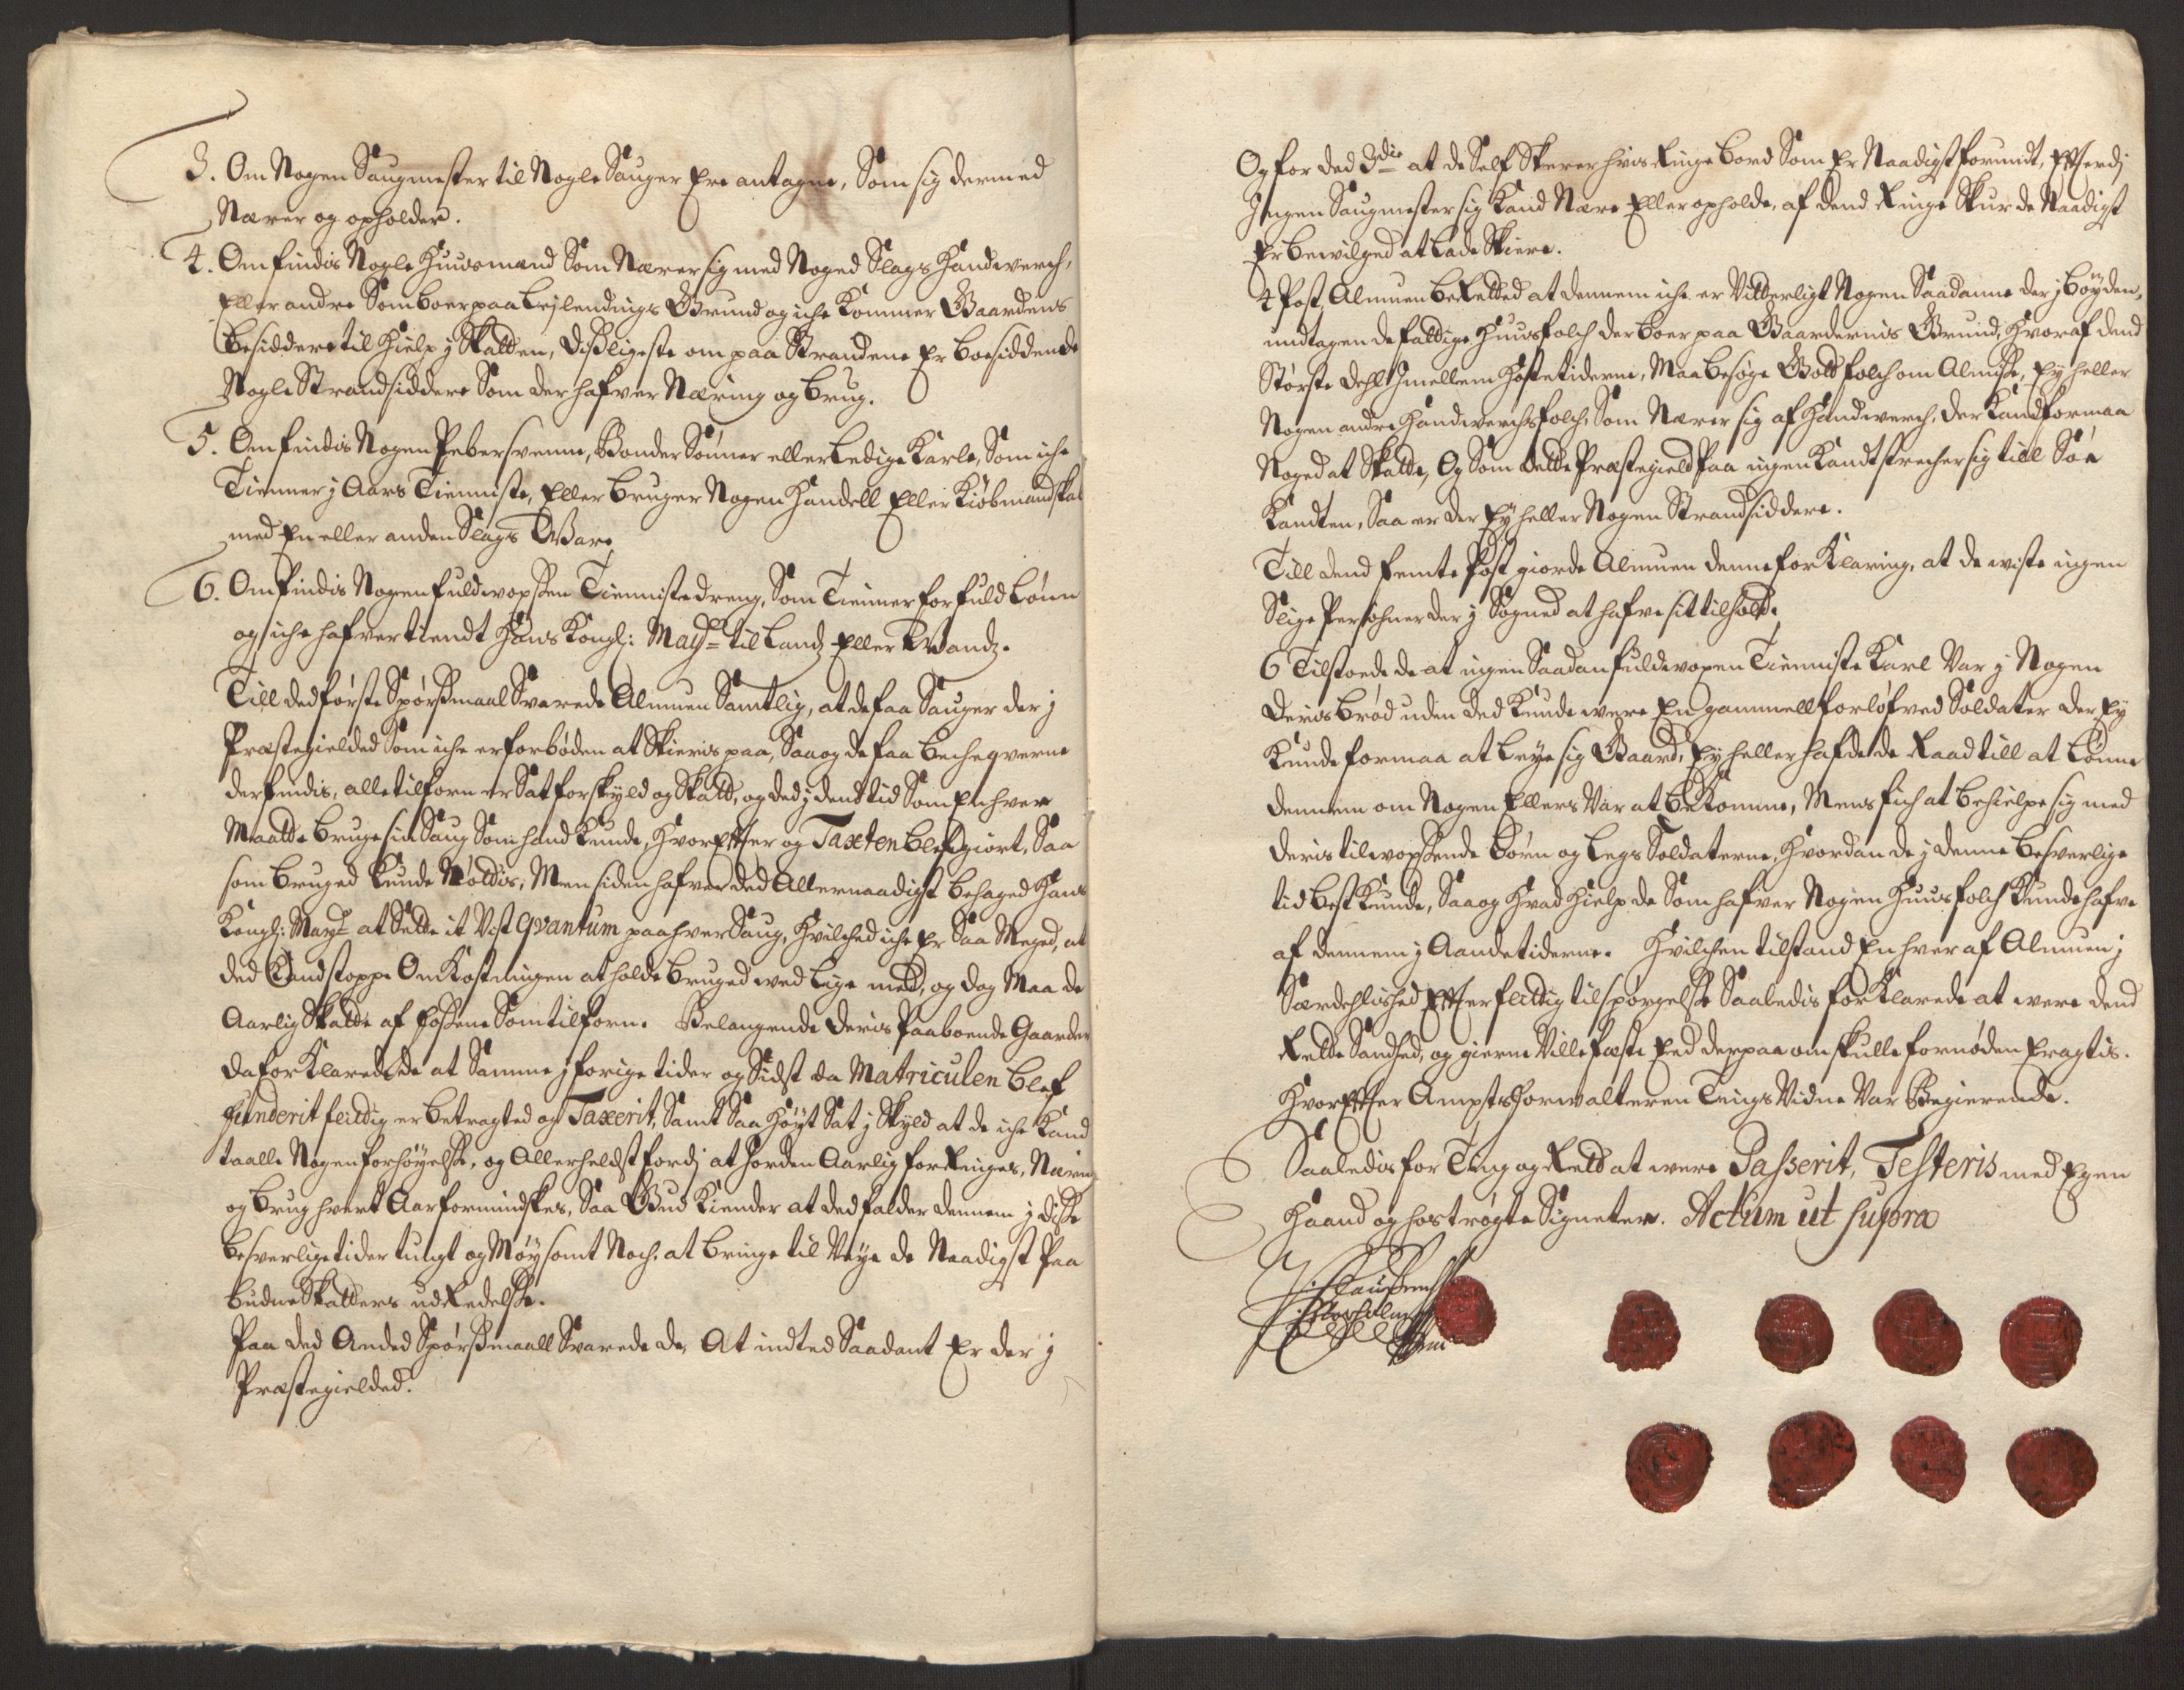 3. Om Nogen Saugmester til Nogle Sauger Ere antagne, Som sig dermed
Nærer og opholder.
4. Om findis Nogle Huusmænd Som Nærer sig med Noged Slags Handverch,
Eller andre Som boer paa Leylendings Grund og iche kommer Gaardens
besiddere til Hielp j Skatten, Dissligeste om paa Strandene Er boesiddende
Nogle Strandsiddere Som der hafver Næring og brug.
5. Om findis Nogen Pebersvenne, Bonder Sönner eller Ledige Karle, Som iche
Tienner j Aars Tienniste, Eller bruger Nogen Handell Eller Kiöbmandskab
med En eller anden Slags Ware,
6. Om findis Nogen fuldvopssen Tiennistedreng, Som Tienner for fuld Lönn
og iche hafver tiendt Hans Kongl: Mayt til Landz Eller Wandz.
Till ded förste Spörssmaal Svarede Almuen Samtlig, at de faa Sauger der j
Præstegielded Som iche er forböden at Skieris paa, Saa og de faa bechequerne
der findis, alle tilforn er Sat for skyld og Skatt, og ded j dend tid Som Enhver
Maatte bruge sin Saug Som hand kunde, Hvor Effter og Taxten blef giort, Saa
som bruged kunde Nöldis, Men siden hafver ded Allernaadigst behaged Hans
Kongl: Mayt at Sette it Vist Qvantum paa hver Saug, Hvilched iche Er Saa Meged, at
ded Kand stoppe Omkostningen at holde bruged ved lige med, og dog Maa de
Aarlig Skatte af Fossene Som tilforn. Belangende deris Paaboende Gaarder
da forklarede de at Samme j forige tider og Sidst da Matriculen blef
funderit flittig er betragted og Taxerit, Samt Saa höyt Sat j Skyld at de iche kand
taalle Nogen forhöyelse, og Allerheldst fordj at Jorden Aarlig forringes, Næring
og brug hvert Aar formindskes, Saa Gud kiender at ded falder dennem j disse
besverlige tider tungt og Möysomt Noch, at bringe til Veye de Naadigst Paa
budne Skatters udredelsse.
Paa ded Anded Spörssmaall Svarede de, At indted Saadant Er der j
Præstegielded.
Og for ded 3die at de Self Skerer hvis Ringe bord Som Er Naadigst forundt, Effterdj
Ingen Saugmester sig kand Nære Eller opholde, af dend Ringe Skur de Naadigst
Er bevilged at lade Skiere.
4 Post, Almuen beretted at dennem iche er Vitterligt Nogen Saadanne der j böyden,
undtagen de fattige Huusfolch der boer paa Gaardernis Grund, Hvoraf dend
Störste dehl Imellem Höstetiderne, Maa besöge Gott folch om Almisse, Ey heller
Nogen andre Handverchsfolch, Som Nærer sig af Handverch, der kand formaa
Noged at Skatte, Og Som dette Præstegield Paa ingen kandt strecher sig till Söe
kandten, Saa er der Ey heller Nogen Strandsiddere.
Till dend femte Post giorde Almuen denne forklaring, at de viste ingen
Slige Persohner der j Sogned at hafve sit tilhold.
6 Tilstoede de at ingen Saadan fuldvoxen Tienniste Karl Var j Nogen
deris bröd uden ded kunde were En gammell forlöfved Soldater der Ey
kunde formaa at leye sig Gaard, Ey heller hafde de Raad till at Lönne
dennem om Nogen Ellers Var at bekomme, Mens fich at behielpe sig med
deris tilvopssende börn og Legs Soldaterne, Hvordan de j denne besverlige
tid best kunde, Saa og Hvad Hielp de Som hafver Nogen Huusfolch kunde hafve
af dennem j Aandetiderne. Hvilchen tilstand Enhver af Almuen j
Særdehlished Effter flittig tilspörgelsse Saaledis forklarede at were dend
Rette Sandhed, og gierne Ville fæste Eed derpaa om skulle fornöden Eragtis.
Hvor Effter Ampts Forwalteren Tings Vidne Var Begierende.
Saaledis for Ting og Rett at were Passerit, Testeris med Egen
Haand og hoströgte Signeter. Actum ut supra